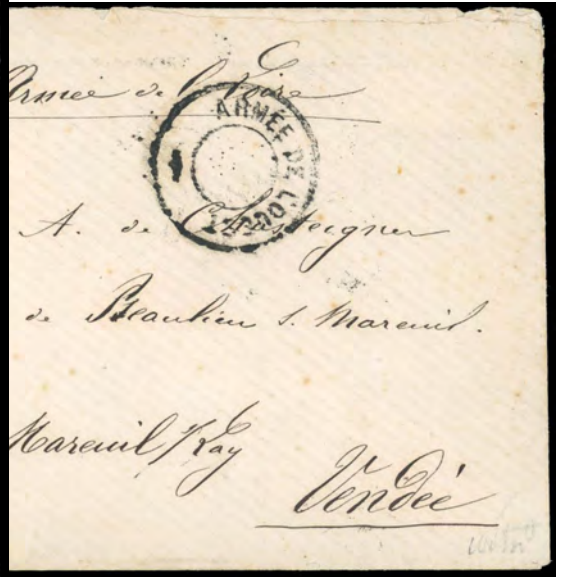 Armée de la Loire
ARMÉE DE L'OUEST
A. de Chasteigner
de Beaulieu s. Mareuil.
Mareuil / Lay
Vendée